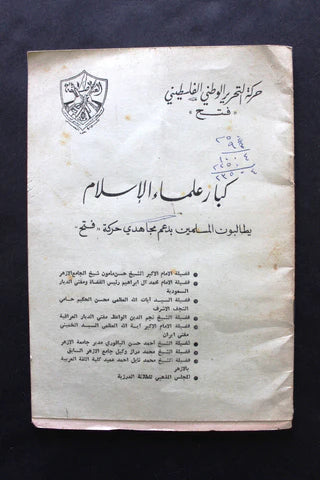 حركة التحرير الوطني الفلسطيني
« فتح »
كبار علماء الإسلام
يطالبون المسلمين بدعم مجاهدي حركة « فتح »
● فضيلة الامام الاكبر الشيخ حسن مأمون شيخ الجامع الازهر
● فضيلة الامام محمد آل ابراهيم رئيس القضاة ومفتي الديار
السعودية
● فضيلة السيد آيات الله العظمى محسن الحكيم حامي
النجف الاشرف
● فضيلة الشيخ نجم الدين الواعظ مفتي الديار العراقية
● فضيلة الامام الاكبر آية الله العظمى السيد الخميني
مفتي ايران
● فضيلة الشيخ احمد حسن الباقوري مدير جامعة الازهر
● فضيلة الشيخ محمد دراز وكيل جامع الازهر السابق
● فضيلة الشيخ محمد نايل احمد عميد كلية اللغة العربية
بالازهر
● المجلس المذهبي للطائفة الدرزية